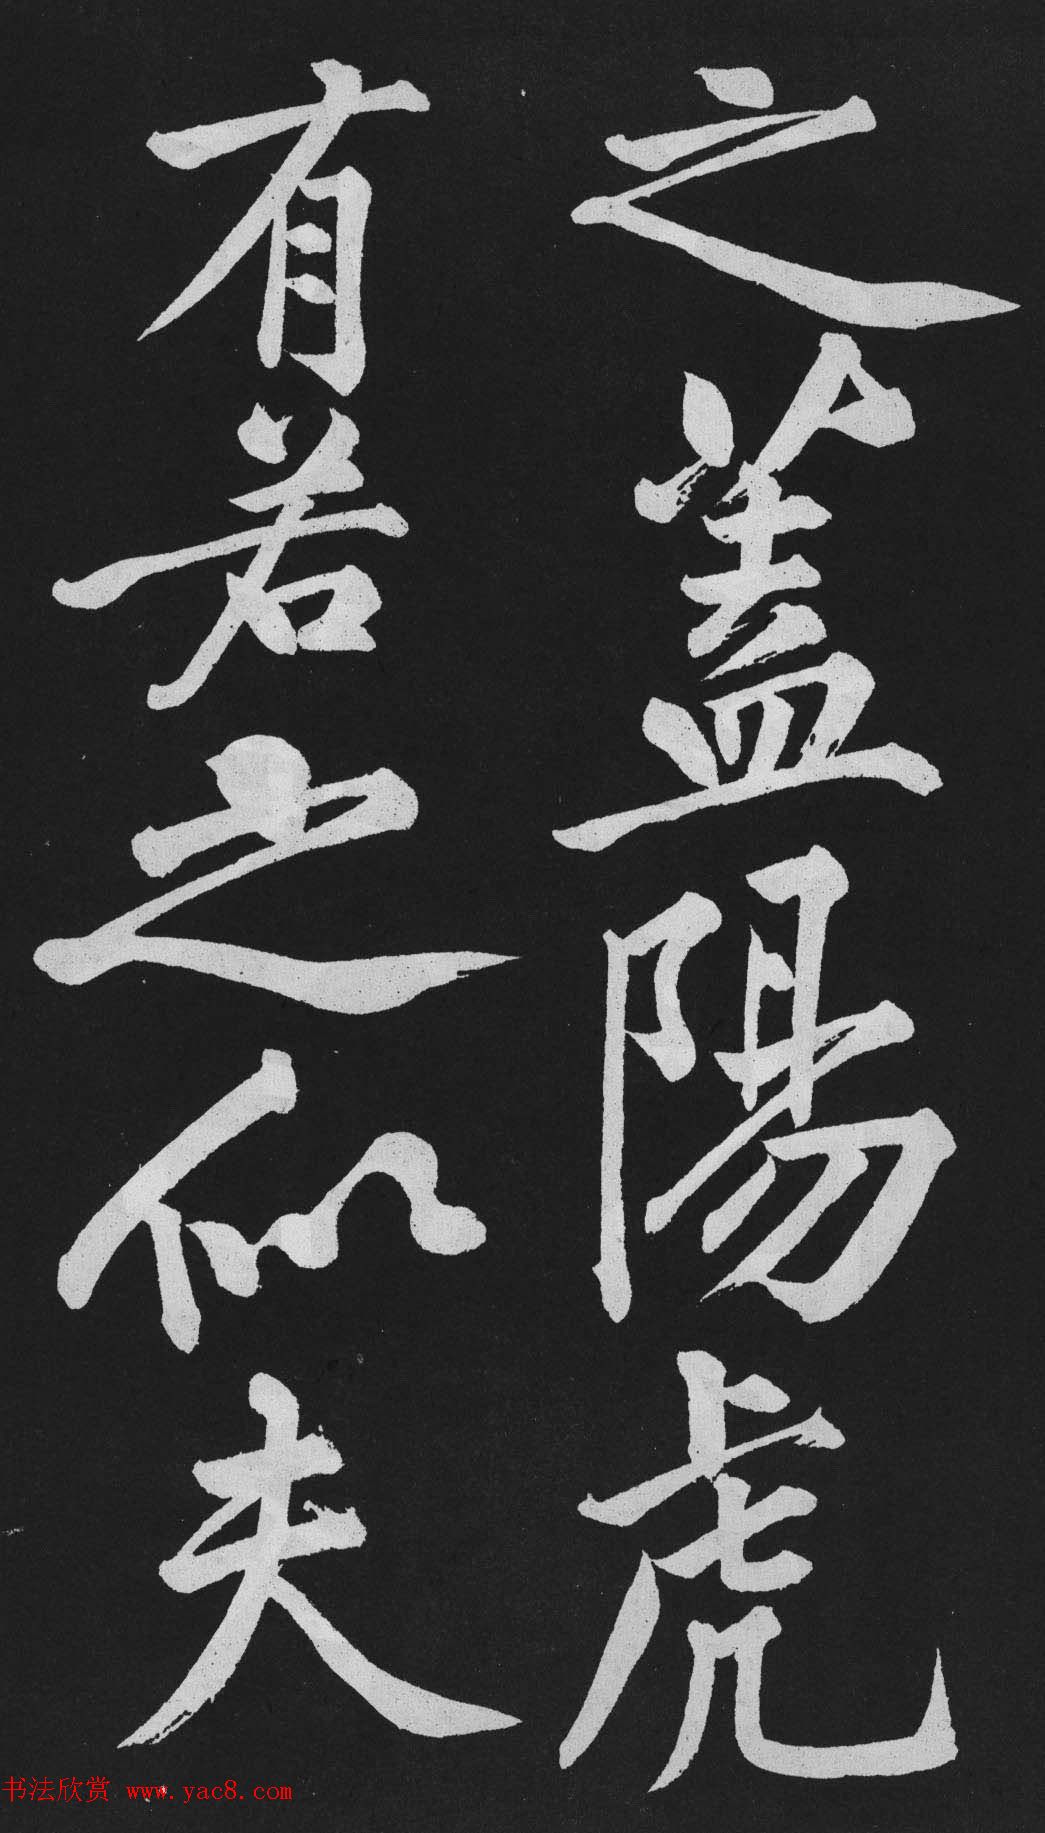 之蓋陽虎
有若之似夫
书法欣赏 www.yac8.com